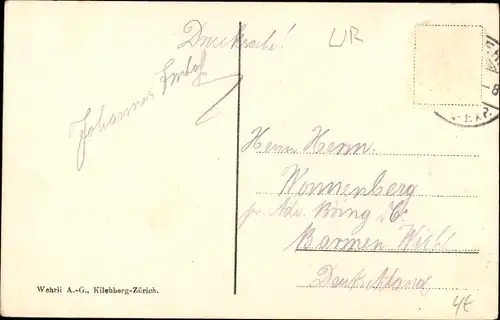 Drucksache!
UR
Johannes Imhof
Herrn Herm.
Wonnenberg
pr. Adr. Böing
Barmen
Deutschland
4€
Wehrli A.-G., Kilchberg-Zürich.